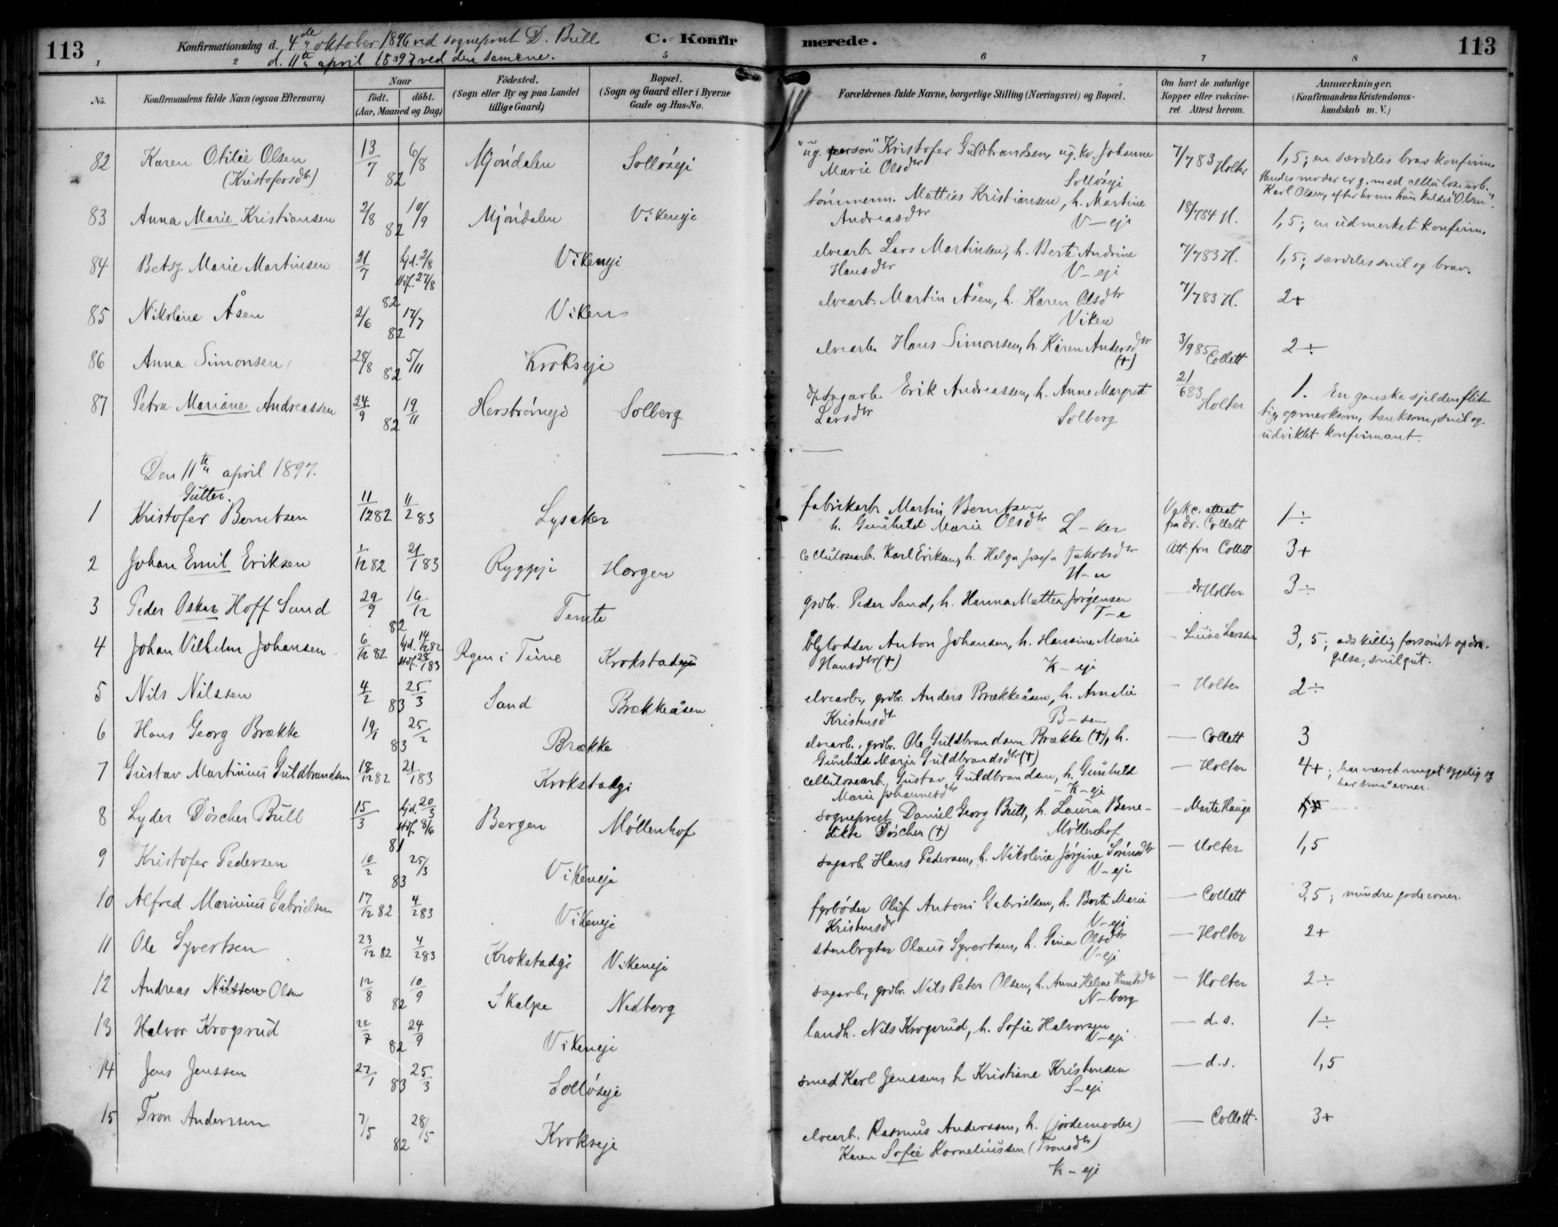 113
Konfirmationsdag d. 4de oktober 1896 ved sogneprest D. Bull.
d. 11te april 1897 ved den samme.
C. Konfirmerede.
113
1 2 5 6 7 8
No.
Konfirmandens fulde Navn (ogsaa Efternavn)
Naar
født. døbt.
(Aar, Maaned og Dag)
Fødested.
(Sogn eller By og paa Landet tillige Gaard)
Bopæl.
(Sogn og Gaard eller i Byerne Gade og Hus-No.
Forældrenes fulde Navne, borgerlige Stilling (Næringsvei) og Bopæl.
Om havt de naturlige Kopper eller vaccineret Attest herom.
Anmærkninger.
(Konfirmandens Kristendomskundskab m. V.)
82 Karen Otilie Olsen (Kristofersdtr) 13/7 82 6/8 Mjøndalen Solløseje "ug. person" Kristofer Guldbrandsen, ug. kv. Johanne Marie Olsdtr Solløseje 7/7 83 Holter 1,5; en særdeles brav konfirm. Hendes moder er g. med cellulosearb. Karl Olsen, efter hvem hun kaldes "Olsen".
83 Anna Marie Kristiansen 2/8 82 10/9 Mjøndalen Vikeneje tømmerm. Mattias Kristiansen, h. Martine Andreasdtr V-eje 18/7 84 H. 1,5; en udmerket konfirm.
84 Betsy Marie Martinsen 21/7 82 hjd. 2/8 stdf. 27/8 Vikeneje elvearb. Lars Martinsen, h. Berte Andrine Hansdtr V-eje 7/7 83 H. 1,5; særdeles snil og brav.
85 Nikoline Åsen 2/6 82 17/7 Viken elvearb. Martin Åsen, h. Karen Olsdtr Viken 7/7 83 H. 2+
86 Anna Simonsen 28/8 82 5/11 Krokseje elvearb. Hans Simonsen, h. Karen Andersdtr (+) 3/9 85 Collett 2÷
87 Petra Mariane Andreassen 24/9 82 19/11 Herstrømeje Solberg dpsagarb. Erik Andreassen, h. Anne Margret Larsdtr Solberg 21/6 83 Holter 1. En ganske sjelden flittig, opmerksom, tænksom, snil og udviklet konfirmant.
Den 11te april 1897.
Gutter.
1 Kristofer Berntsen 11/12 82 11/2 83 Lysaker fabrikarb. Martin Berntsen h. Gunhild Marie Olsdtr L-ker Vakc. attest fra dr. Collett 1÷
2 Johan Emil Eriksen 1/12 82 21/1 83 Ryggeje Horgen cellulosearb. Karl Eriksen, h. Helga Josefa Jakobsdtr H-n Att. fra Collett 3+
3 Peder Oskar Hoff Sand 29/9 82 19/12 Temte grdbr. Peder Sand, h. Hanna Mattea Jørgensen T-e - dr Holter 3÷
4 Johan Vilhelm Johansen 6/12 82 hjd. 14/12 82 stdf. 28/1 83 Rgen i Tune Krokstadeje Anton Johansen, h. Hansine Marie Hansdtr (+) K-eje - Luise Larssen 3,5; adskillig forsømt opdragelse; snil gut.
5 Nils Nilssen 4/2 83 25/3 Sand Brækkeåsen elvearb., grdbr. Anders Brækkeåsen, h. Amalie Kristensdtr B-sen - Holter 2÷
6 Hans Georg Brække 19/1 83 25/2 Brække elvearb., grdbr. Ole Guldbrandsen Brække (+), h. Gunhild Marie Guldbrandsdtr (+) - Collett 3
7 Gustav Martinius Guldbrandsen 18/12 82 21/1 83 Krokstadeje cellulosearb. Gustav Guldbrandsen, h. Gunhild Marie Johannesdtr K-eje - Holter 4+; har været meget sygelig og har små evner.
8 Lyder Döscher Bull 15/3 81 hjd. 20/3 stdf. 8/6 Bergen Møllenhof sogneprest Daniel Georg Bull, h. Laura Benedikte Döscher (+) Møllenhof - Marte Hauge
9 Kristofer Pedersen 10/2 83 25/3 Vikeneje sagarb. Hans Pedersen, h. Nikoline Jørgine Sørensdtr V-eje - Holter 1,5
10 Alfred Marinius Gabrielsen 17/12 82 4/2 83 Vikeneje fyrbøder Oluf Antoni Gabrielsen, h. Berte Marie Kristensdtr V-eje - Collett 3,5; mindre gode evner.
11 Ole Syvertsen 23/12 82 4/2 83 Krokstadeje Vikeneje stenbryter Olaus Syvertsen, h. Gina Olsdtr V-eje - Holter 2+
12 Andreas Nilssen Olsen 12/8 82 10/9 Skalpe Nedberg sagarb., grdbr. Nils Peter Olsen, h. Anne Helene Knudsdtr N-berg - Holter 2÷
13 Halvor Krogsrud 22/7 82 24/9 Vikeneje landh. Nils Krogsrud, h. Sofie Halvorsen V-eje - d.s. 1÷
14 Jens Jenssen 27/1 83 25/3 Solløseje smed Karl Jenssen, h. Kristiane Kristensen S-eje - d.s. 1,5
15 Tron Anderssen 7/5 82 28/5 Krokseje elvearb. Rasmus Anderssen, h. (jordemoder) Karen Sofie Korneliussen (Tronsdtr) K-eje - Collett 3+